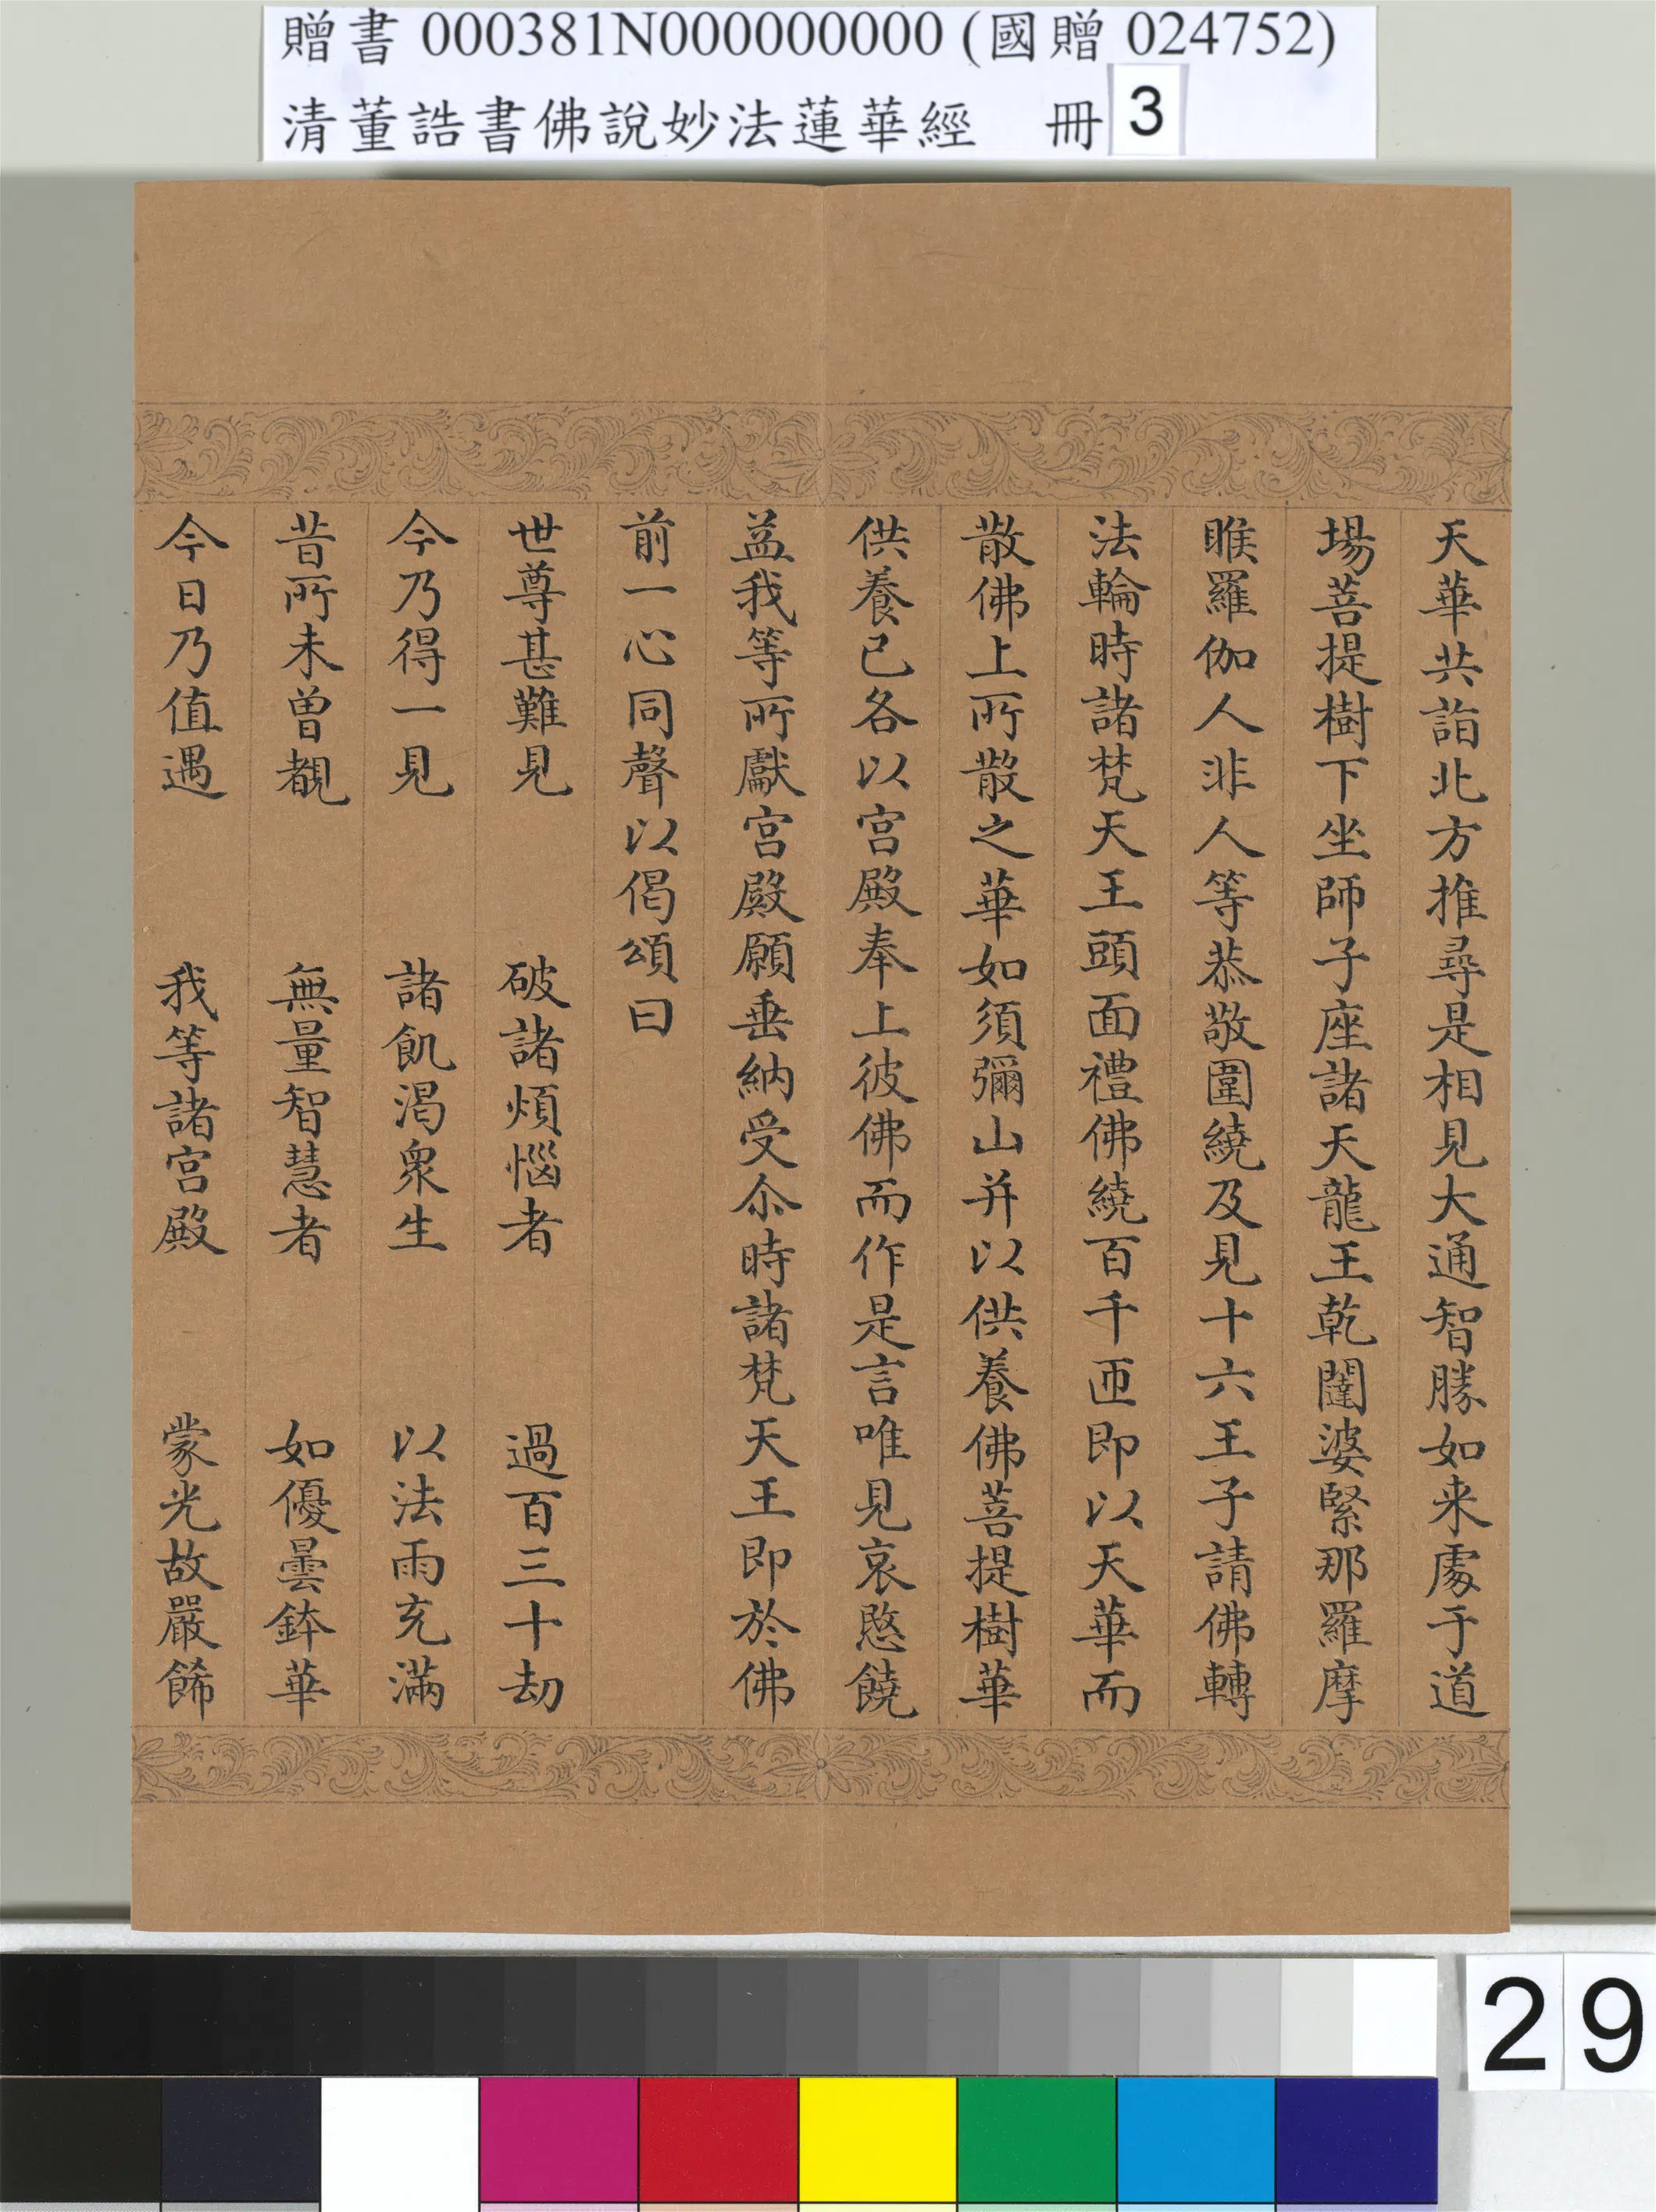 贈書 000381N000000000 (國贈 024752)
清董誥書佛說妙法蓮華經 冊 3
天華共詣北方推尋是相見大通智勝如来處于道
場菩提樹下坐師子座諸天龍王乾闥婆緊那羅摩
睺羅伽人非人等恭敬圍繞及見十六王子請佛轉
法輪時諸梵天王頭面禮佛繞百千匝即以天華而
散佛上所散之華如須彌山并以供養佛菩提樹華
供養已各以宮殿奉上彼佛而作是言唯見哀愍饒
益我等所獻宮殿願垂納受尒時諸梵天王即於佛
前一心同聲以偈頌曰
世尊甚難見 破諸煩惱者 過百三十劫
今乃得一見 諸飢渴衆生 以法雨充滿
昔所未曾覩 無量智慧者 如優曇鉢華
今日乃值遇 我等諸宮殿 蒙光故嚴餙
29